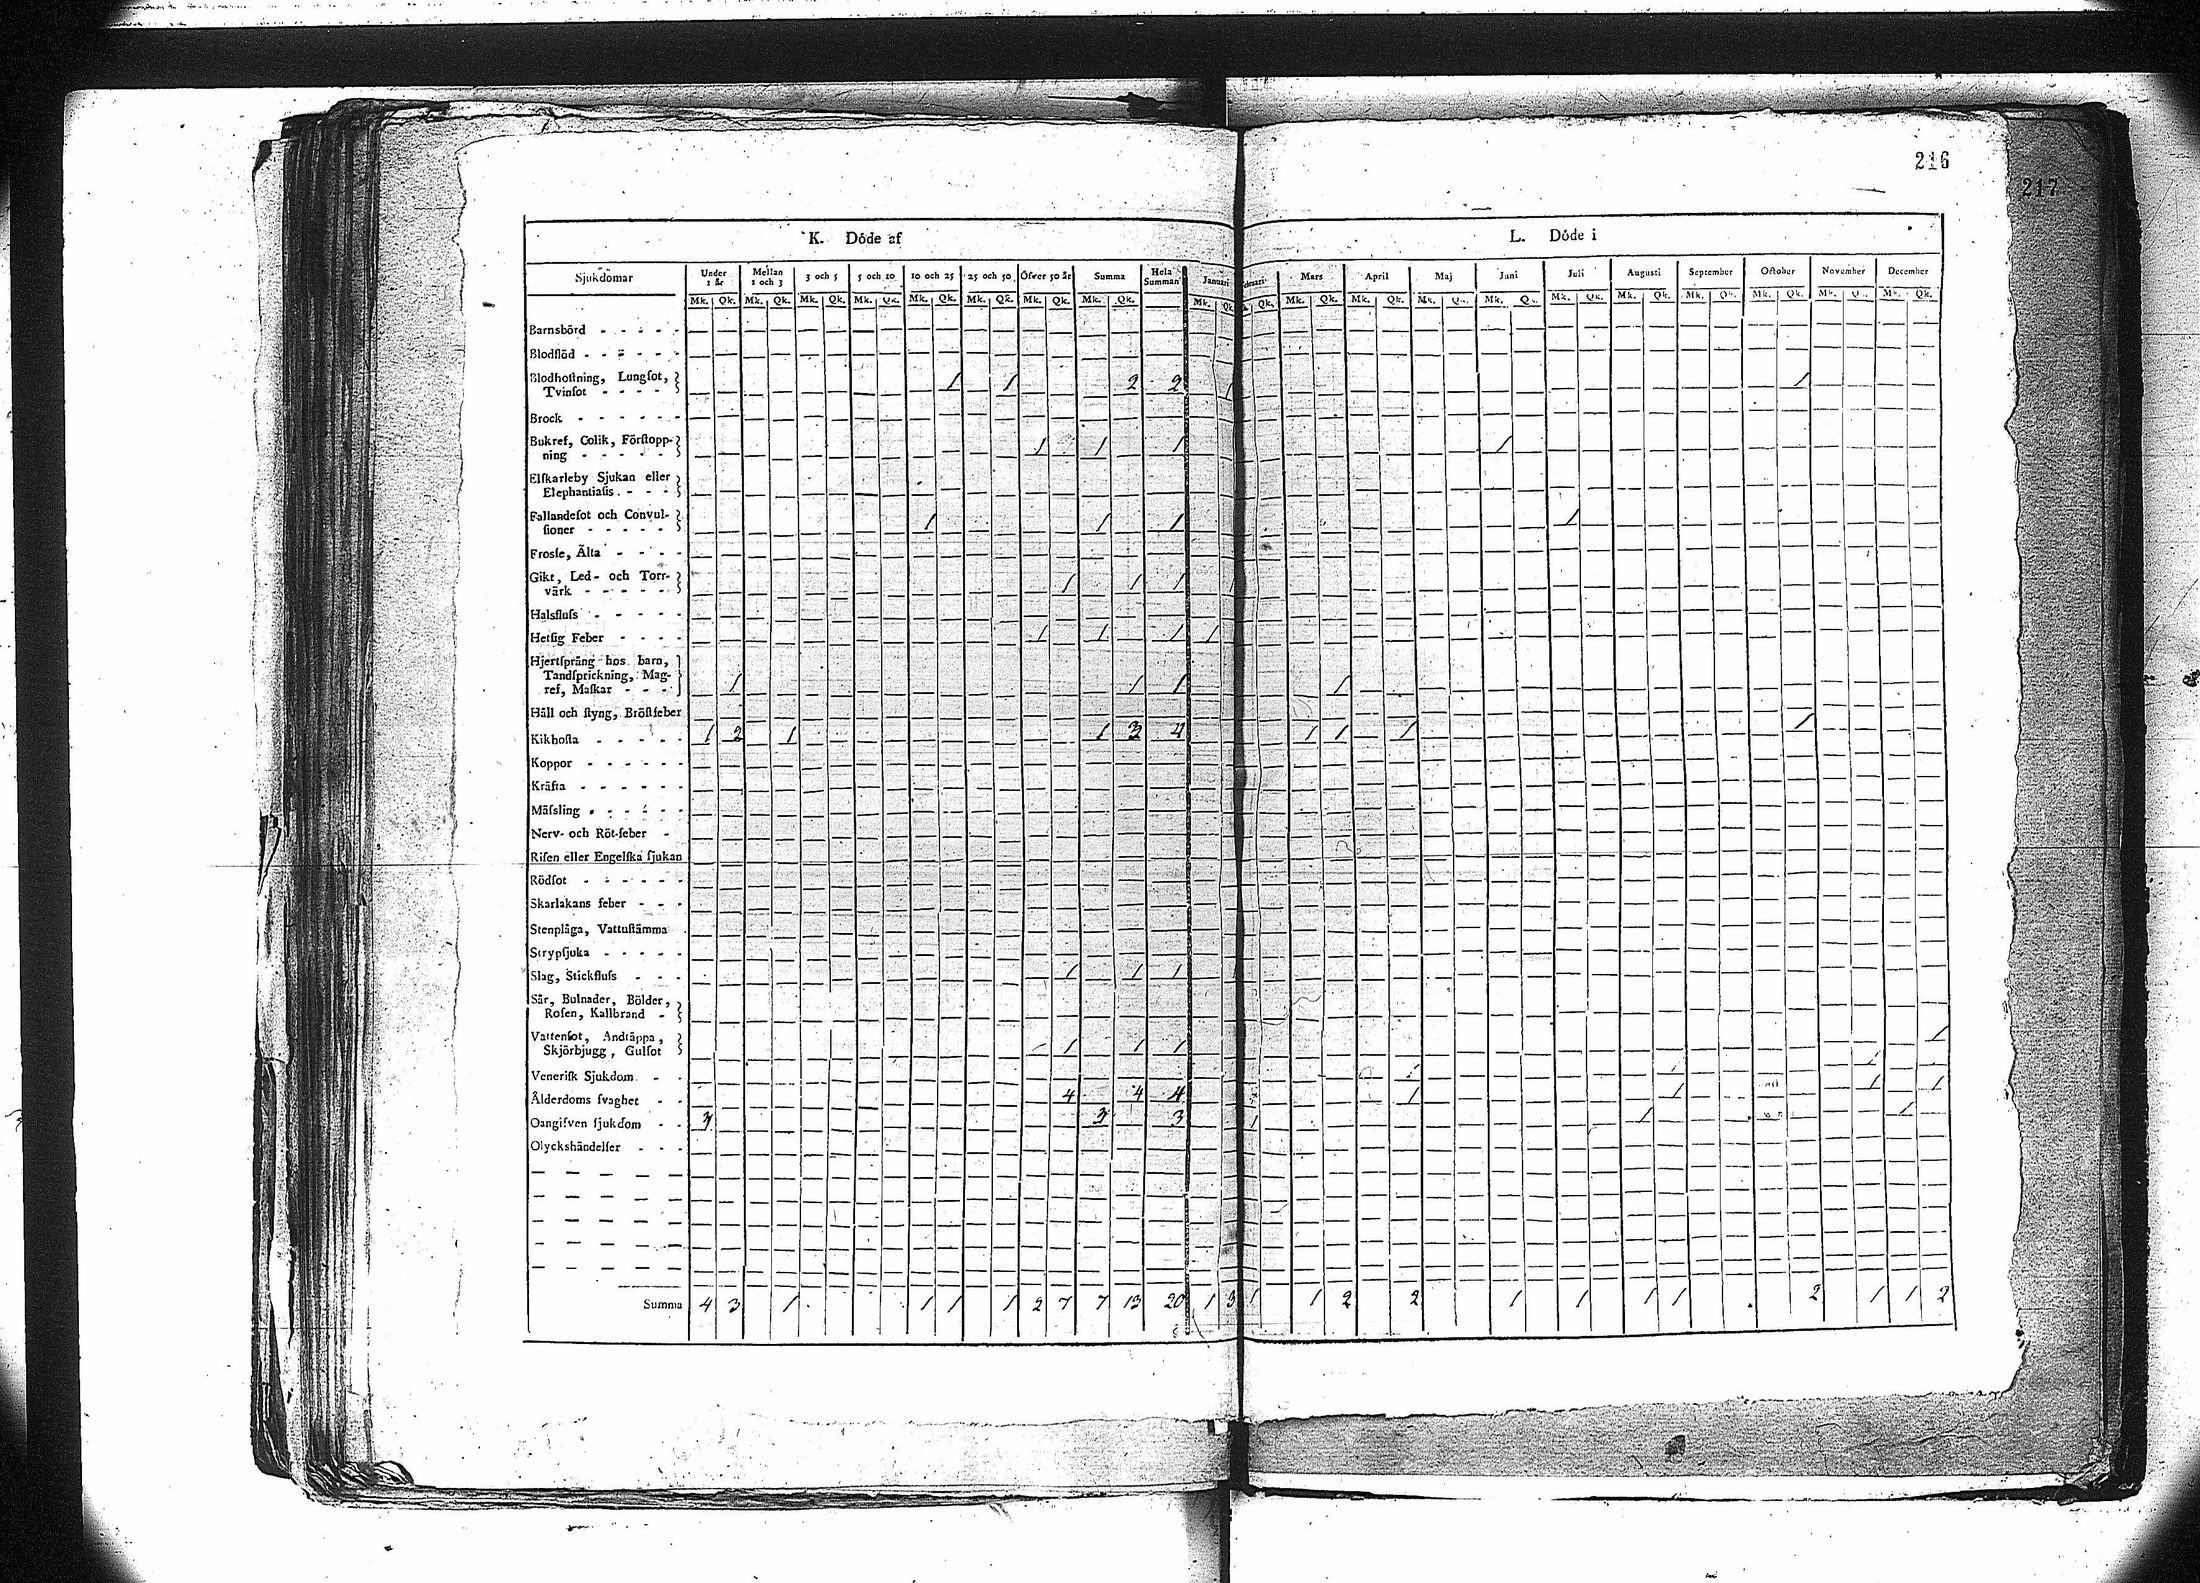 216
217
K. Döde af
L. Döde i
Sjukdomar Under 1 år Mellan 1 och 3 3 och 5 5 och 10 10 och 25 25 och 50 Öfver 50 år Summa Hela Summan Januari Mars April Maj Juni Juli Augusti September October November December
Mk. Qk. Mk. Qk. Mk. Qk. Mk. Qk. Mk. Qk. Mk. Qk. Mk. Qk. Mk. Qk. Mk. Qk. Qk. Mk. Qk. Mk. Qk. Mk. Mk. Qk. Mk. Qk. Mk. Qk. Mk. Mk. Qk. Mk. Mk. Qk.
Barnsbörd - - - - -
Blodflöd - - - - - -
Blodhoſtning, Lungſot,
Tvinſot - - - - 1 1 2 2 1 1
Brock - - - - - -
Bukref, Colik, Förſtopp-
ning - - - - - 1 1 1 1
Elſkarleby Sjukan eller
Elephantiaſis - - -
Fallandeſot och Convul-
ſioner - - - - - 1 1 1 1
Frosſe, Älta - - - -
Gikt, Led- och Torr-
värk - - - - - 1 1 1 1
Halsfluſs - - - - -
Hetſig Feber - - - - 1 1 1 1
Hjertſprång hos barn,
Tandſprickning, Mag-
ref, Maſkar - - - 1 1 1 1
Håll och ſtyng, Bröſtfeber
Kikhoſta - - - - - 1 2 1 1 3 4 1 1 1 1
Koppor - - - - - -
Kräfta - - - - - -
Mäſsling - - - - - -
Nerv- och Röt-feber -
Riſen eller Engelſka ſjukan
Rödſot - - - - - -
Skarlakans feber - - -
Stenplåga, Vattuſtämma
Strypſjuka - - - - -
Slag, Stickfluſs - - - 1 1 1 1
Sår, Bulnader, Bölder,
Roſen, Kallbrand -
Vattenſot, Andtäppa,
Skjörbjugg, Gulſot 1 1 1 1
Veneriſk Sjukdom - -
Ålderdoms ſvaghet - - 4 4 4 1 1 1 1
Oangifven ſjukdom - - 3 3 3 1 1 1
Olyckshändelſer - - -
Summa 4 3 1 1 1 1 2 7 7 13 20 1 3 1 1 2 2 1 1 1 1 2 1 1 2